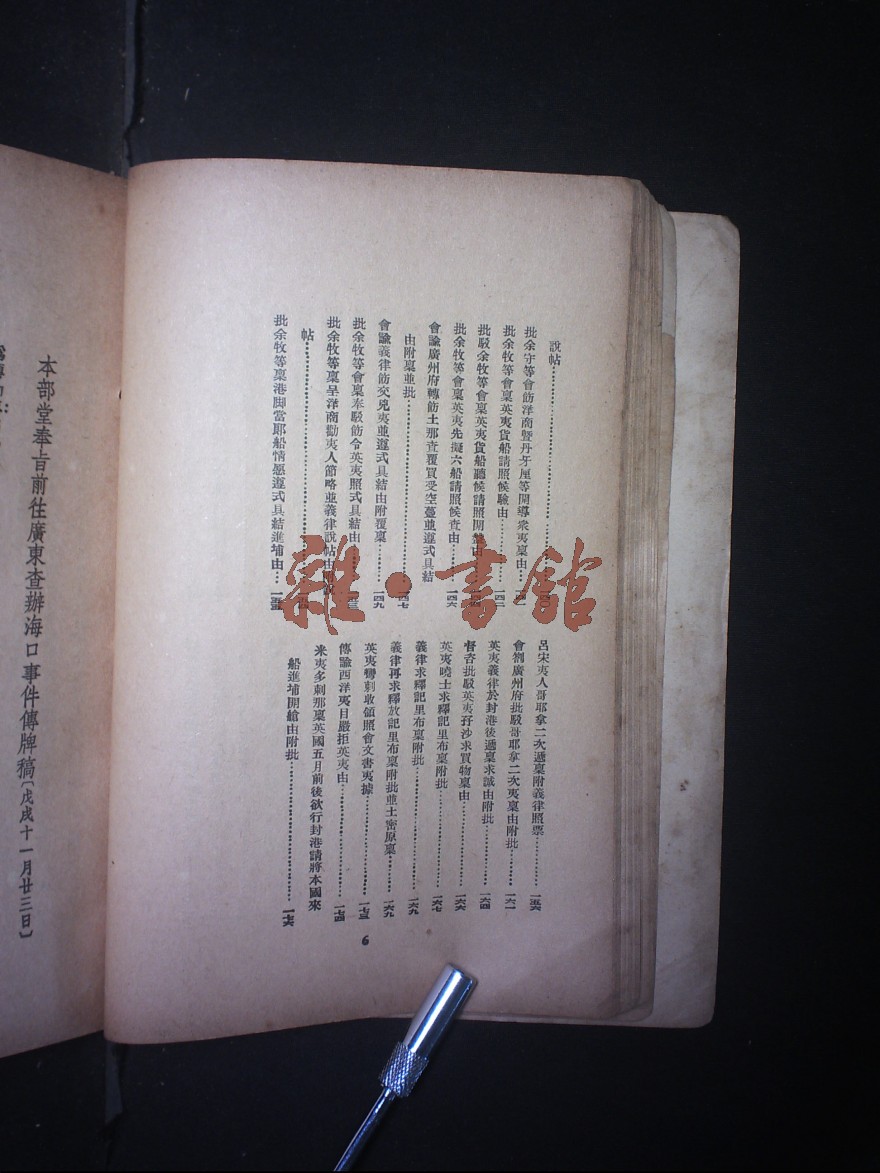 說帖
批余守等會飭洋商暨丹牙厘等開導衆夷稟由
批余牧等會稟英夷貨船請照候驗由
批駁余牧等會稟英夷貨船聽候請照開艙由
批余牧等會稟英夷先擬六船請照候查由…一四六
會諭廣州府轉飭土那查覆買受空躉並遵式具結
由附稟並批…一四七
會諭義律飭交兇夷並遵式具結由附覆稟…一四九
批余牧等會稟奉駁飭令英夷照式具結由
批余牧等稟呈洋商勸夷人節略並義律說帖由
帖
批余牧等稟港脚當郎船情愿遵式具結進埔由…一五五
呂宋夷人哥耶拿二次遞稟附義律照票…一五六
會劄廣州府批駁哥耶拿二次夷稟由附批…一六一
英夷義律於封港後遞稟求誠由附批…一六四
督咨批駁英夷孖沙求買物稟由…一六六
英夷曉士求釋記里布稟附批…一六七
義律求釋記里布稟附批…一六九
義律再求釋放記里布稟附批並土密原稟…一六九
英夷彎剌收領照會文書夷據…一七三
傳諭西洋夷目嚴拒英夷由…一七四
米夷多剌那稟英國五月前後欲行封港請將本國來
船進埔開艙由附批…一七六
6
雜·書館
本部堂奉旨前往廣東查辦海口事件傳牌稿(戊戌十一月廿三日)